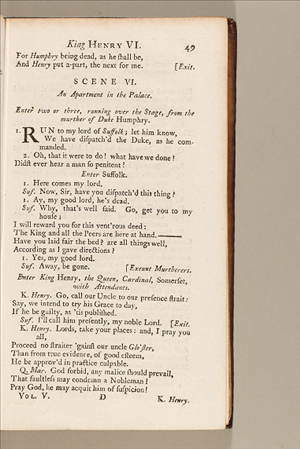 King HENRY VI. 49
For Humphry being dead, as he ſhall be,
And Henry put a-part, the next for me. [Exit.
SCENE VI.
An Apartment in the Palace.
Enter two or three, running over the Stage, from the
murther of Duke Humphry.
1. RUN to my lord of Suffolk; let him know,
We have diſpatch'd the Duke, as he com-
manded.
2. Oh, that it were to do! what have we done?
Didſt ever hear a man ſo penitent?
Enter Suffolk.
1. Here comes my lord.
Suf. Now, Sir, have you diſpatch'd this thing?
1. Ay, my good lord, he's dead.
Suf. Why, that's well ſaid. Go, get you to my
houſe;
I will reward you for this vent'rous deed:
The King and all the Peers are here at hand.———
Have you laid fair the bed? are all things well,
According as I gave directions?
1. Yes, my good lord.
Suf. Away, be gone. [Exeunt Murtherers.
Enter King Henry, the Queen, Cardinal, Somerſet,
with Attendants.
K. Henry. Go, call our Uncle to our preſence ſtrait:
Say, we intend to try his Grace to day,
If he be guilty, as 'tis publiſhed.
Suf. I'll call him preſently, my noble Lord. [Exit.
K. Henry. Lords, take your places: and, I pray you
all,
Proceed no ſtraiter 'gainſt our uncle Glo'ſter,
Than from true evidence, of good eſteem,
He be approv'd in practice culpable.
Q. Mar. God forbid, any malice ſhould prevail,
That faultleſs may condemn a Nobleman!
Pray God, he may acquit him of ſuſpicion!
VOL. V. D K. Henry.